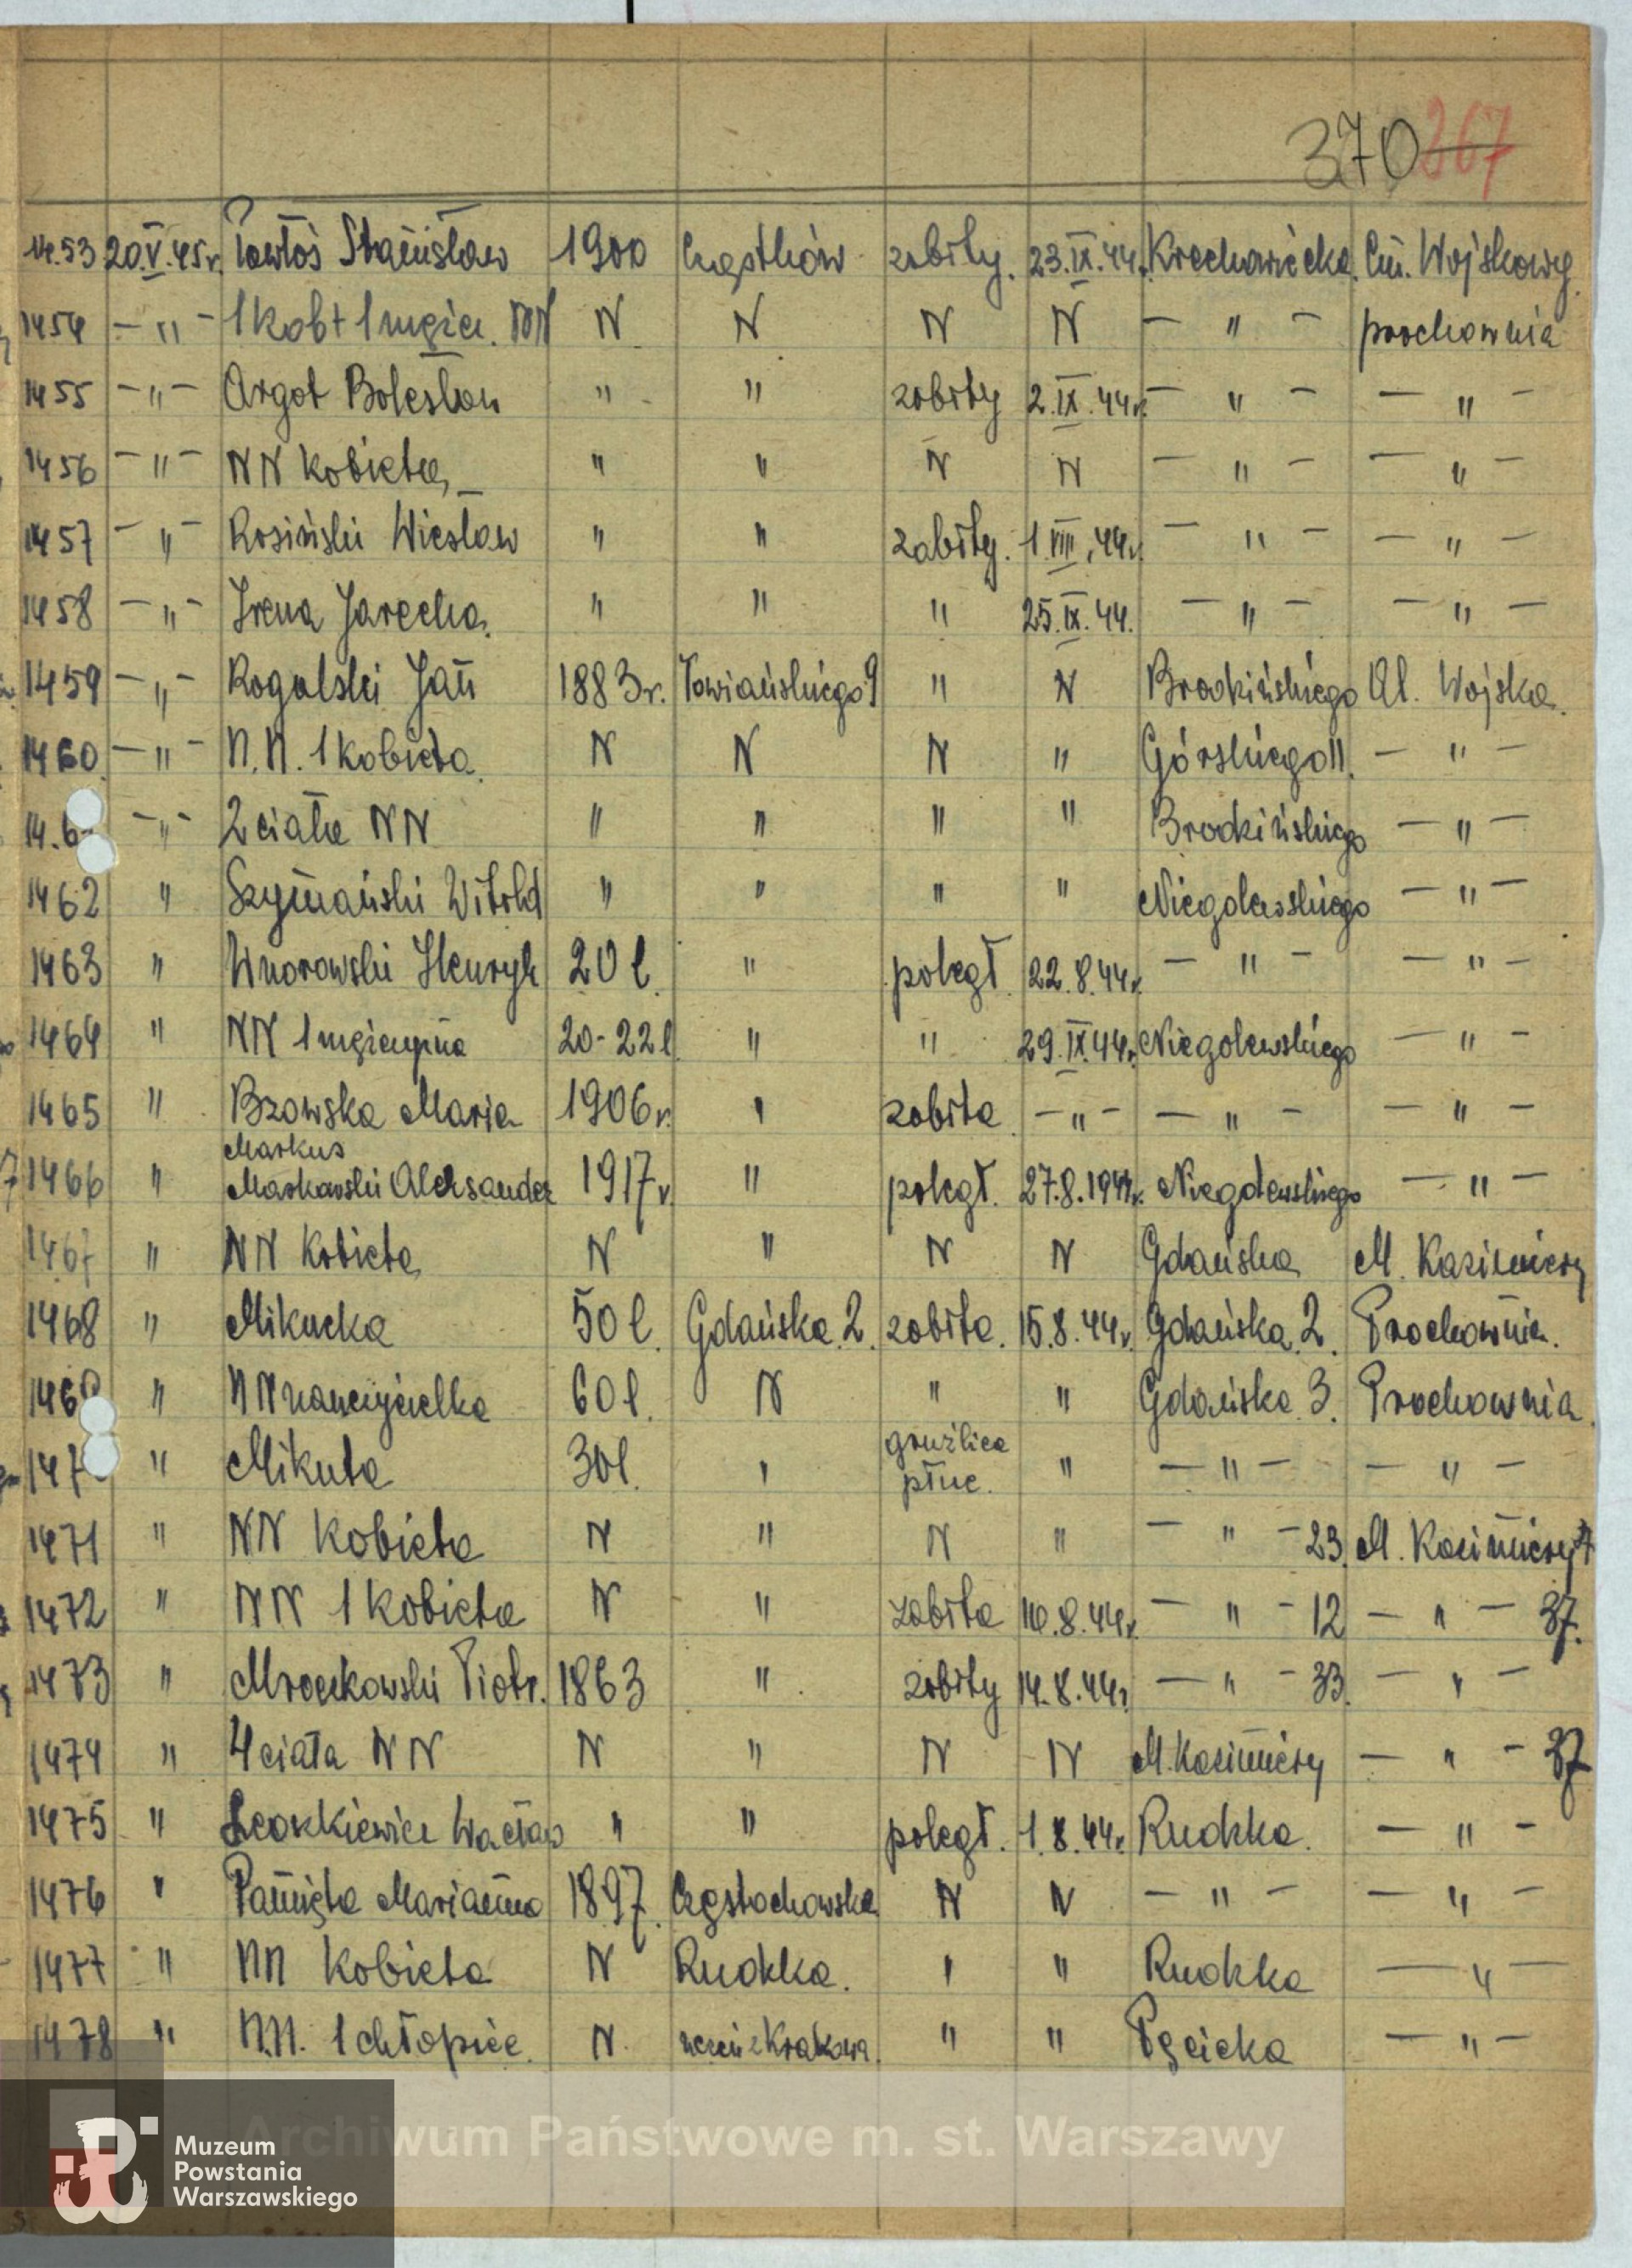 370 267
14.53 20.V.45r. Pawłoś Stanisław 1900 Cząstków zabity. 23.IX.44. Krechowiecka Cm. Wojskowy
1454 — " — 1 kob + 1 męszcz. NN N N N N — " — prochownia
1455 — " — Argot Bolesław " " zabity 2.IX.44r. — " — — " —
1456 — " — NN kobieta " " N N — " — — " —
1457 — " — Rosiński Wiesław " " zabity. 1.VIII.44r. — " — — " —
1458 — " — Irena Jarecka " " " 25.IX.44. — " — — " —
1459 — " — Rogalski Jan 1883r. Towiańskiego 9 " N Brodzińskiego Al. Wojska
1460 — " — N.N. 1 kobieta N N N " Górskiego 11. — " —
14.6 — " — 2 ciała NN " " " " Brodzińskiego — " —
1462 " Szymański Witold " " " " Niegolewskiego — " —
1463 " Wnorowski Henryk 20 l. " poległ 22.8.44r. — " — — " —
1464 " NN 1 mężczyzna 20-22 l " " 29.IX.44r. Niegolewskiego — " —
1465 " Bzowska Maria 1906r. " zabita — " — — " — — " —
Markus
1466 " Markowski Aleksander 1917r. " poległ. 27.8.1944r. Niegolewskiego — " —
1467 " NN kobieta N " N N Gdańska M. Kazimiery
1468 " Mikucka 50 l. Gdańska 2. zabita. 15.8.44r. Gdańska 2. Prochownia.
146 " NN nauczycielka 60 l. N " " Gdańska 3. Prochownia
147 " Mikuta 30 l. " gruźlica płuc. " — " — — " —
1471 " NN kobieta N " N " — " — 23 M. Kazimiery
1472 " NN 1 kobieta N " zabita 8.44r. — " — 12 — " — 37.
1473 " Mroczkowski Piotr. 1863 " zabity 14.8.44r. — " — 33. — " —
1474 " 4 ciała NN N " N N M. Kazimiery — " — 37
1475 " Leoszkiewicz Wacław " " poległ. 1.8.44r. Rudzka. — " —
1476 " Pamięta Marianna 1897. Częstochowska N N — " — — " —
1477 " NN kobieta N Rudzka. " " Rudzka — " —
1478 " N.N. 1 chłopiec. N. uczeń z Krakowa. " " Pęcicka — " —
Archiwum Państwowe m. st. Warszawy
Muzeum
Powstania
Warszawskiego